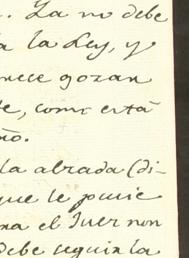 . Ya no debe
a la Ley, y
nece gozan
te, como está
no.
la alzada (di-
que le ponie
na el Juez non
debe seguir la